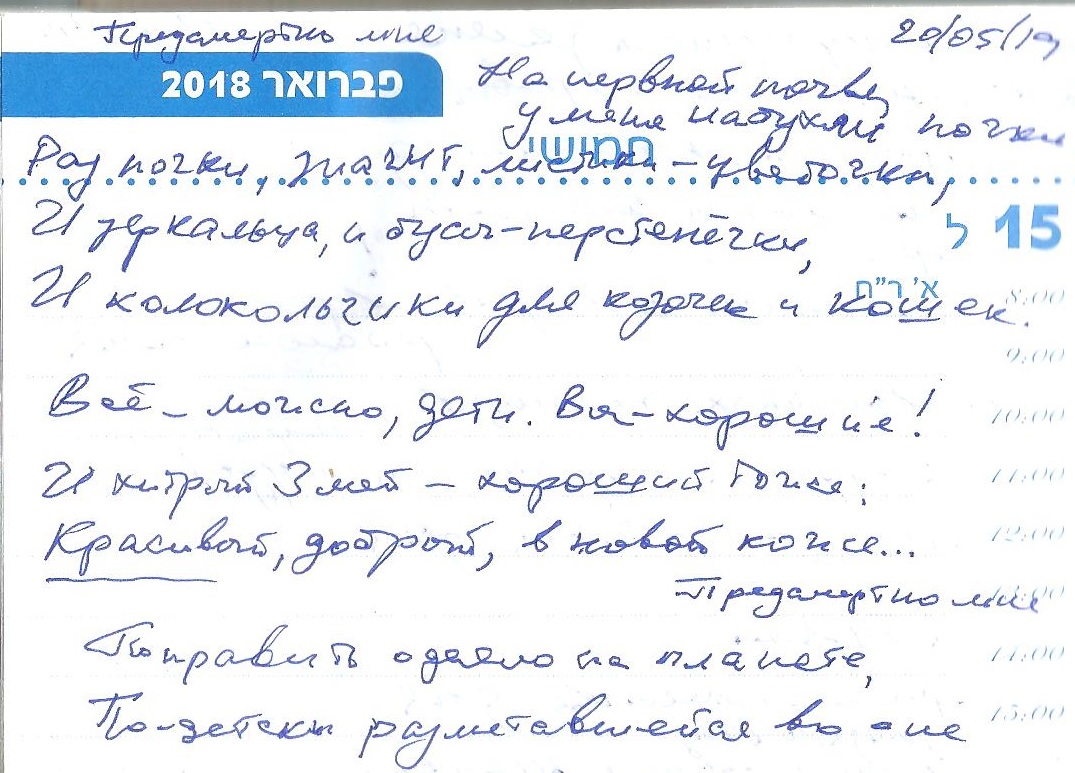 Предсмертно мне 20/05/19
פברואר 2018
На нервной почве,
у меня набухли почки
חמישי
Раз почки, значит, листики-цветочки,
И зеркальца, и бусы-перстенёчки,
ל 15
א' ר"ח
И колокольчики для козочек и кошек.
8:00
9:00
Всё – можно, дети. Вы – хорошие!
10:00
И хитрый Змей – хороший тоже:
11:00
Красивый, добрый, в новой коже...
12:00
Предсмертно мне
Поправить одеяло на планете,
14:00
По-детски разметавшейся во сне
15:00